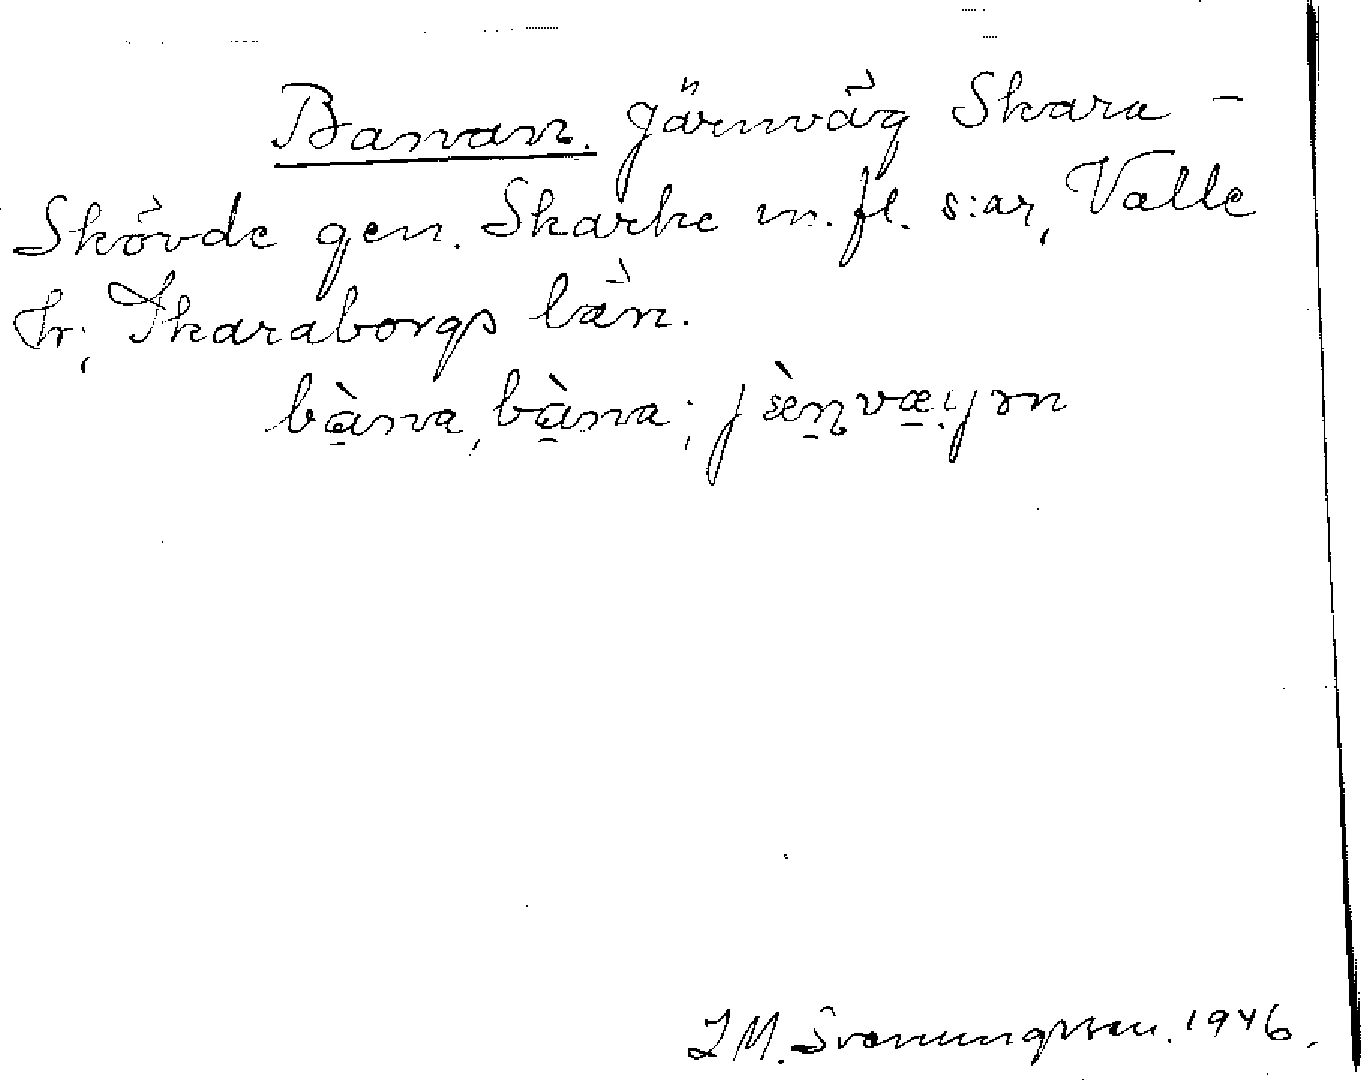 Banan. Järnväg Skara –
Skövde gen. Skarke m. fl. s:ar, Valle
hr; Skaraborgs län.
bàna, bàna; jæ̀n̥væ.yrn
I M. Svanungsson. 1946.